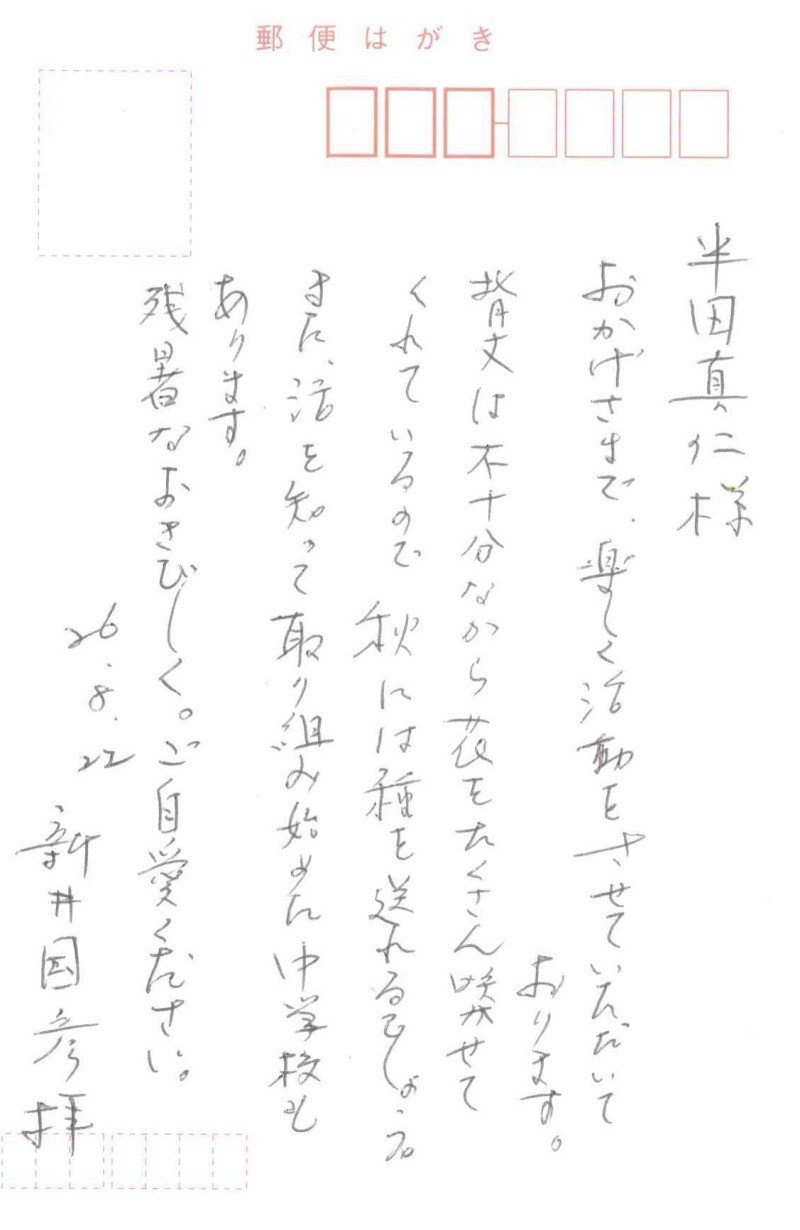 郵便はがき
半田真仁様
おかげさまで、楽しく活動をさせていただいて
おります。
背丈は不十分ながら花をたくさん咲かせて
くれているので秋には種を送れるでしょう。
また、活を知って取り組み始めた中学校も
あります。
残暑なおきびしく。ご自愛ください。
26.8.22
新井国彦拝